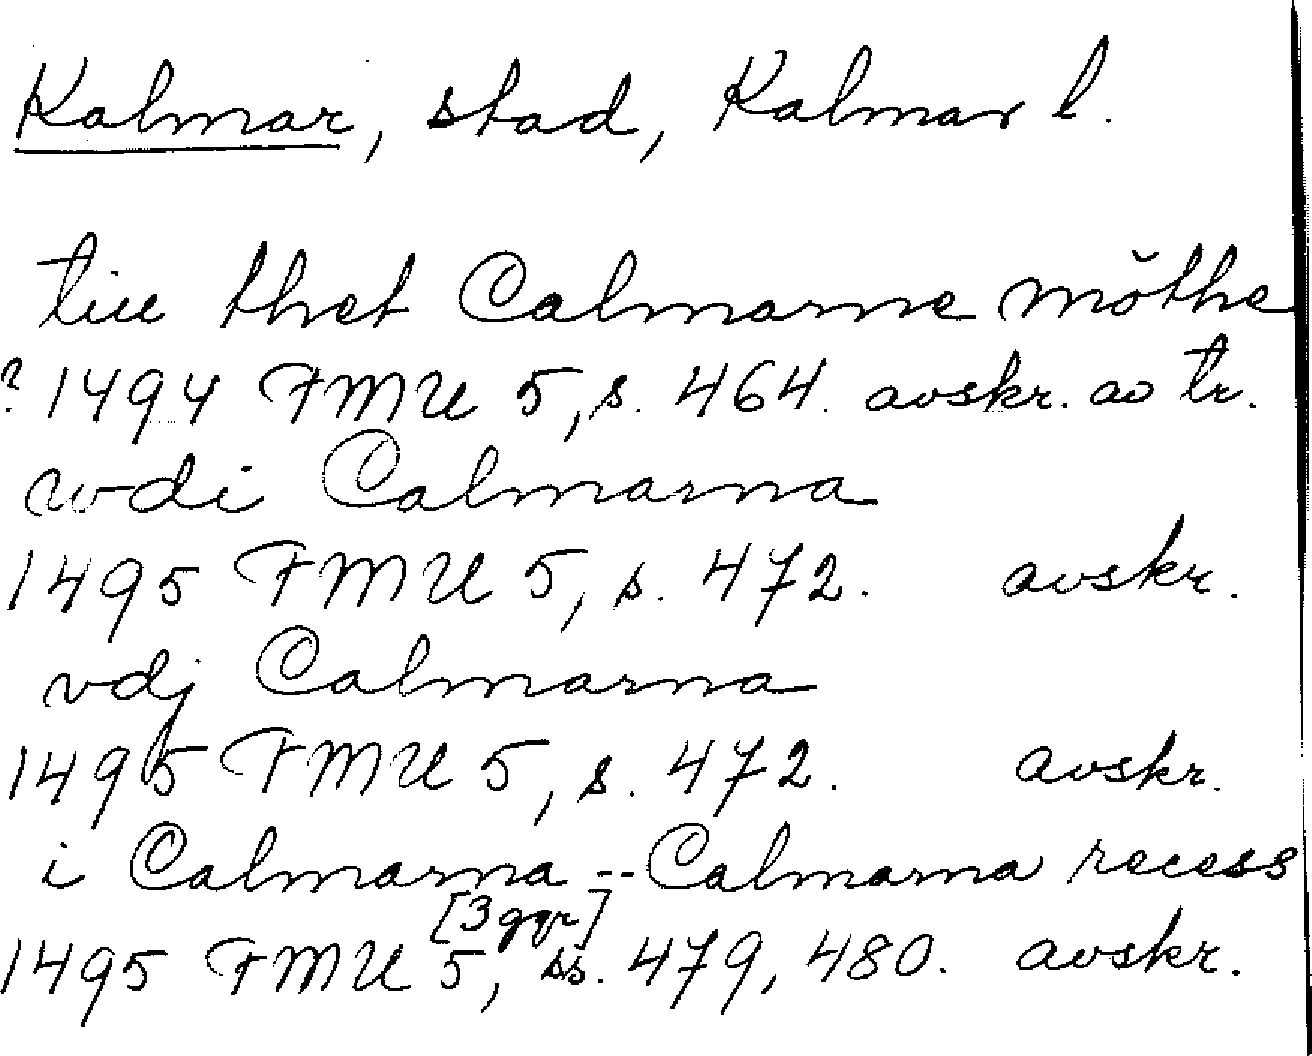 Kalmar, stad, Kalmar l.
till thet Calmarne möthe
? 1494 FMU 5, s. 464. avskr. av tr.
wdi Calmarna
1495 FMU 5, s. 472. avskr.
vdj Calmarna
1495 FMU 5, s. 472. avskr.
i Calmarna -- Calmarna recess
[3 ggr]
1495 FMU 5, ss. 479, 480. avskr.